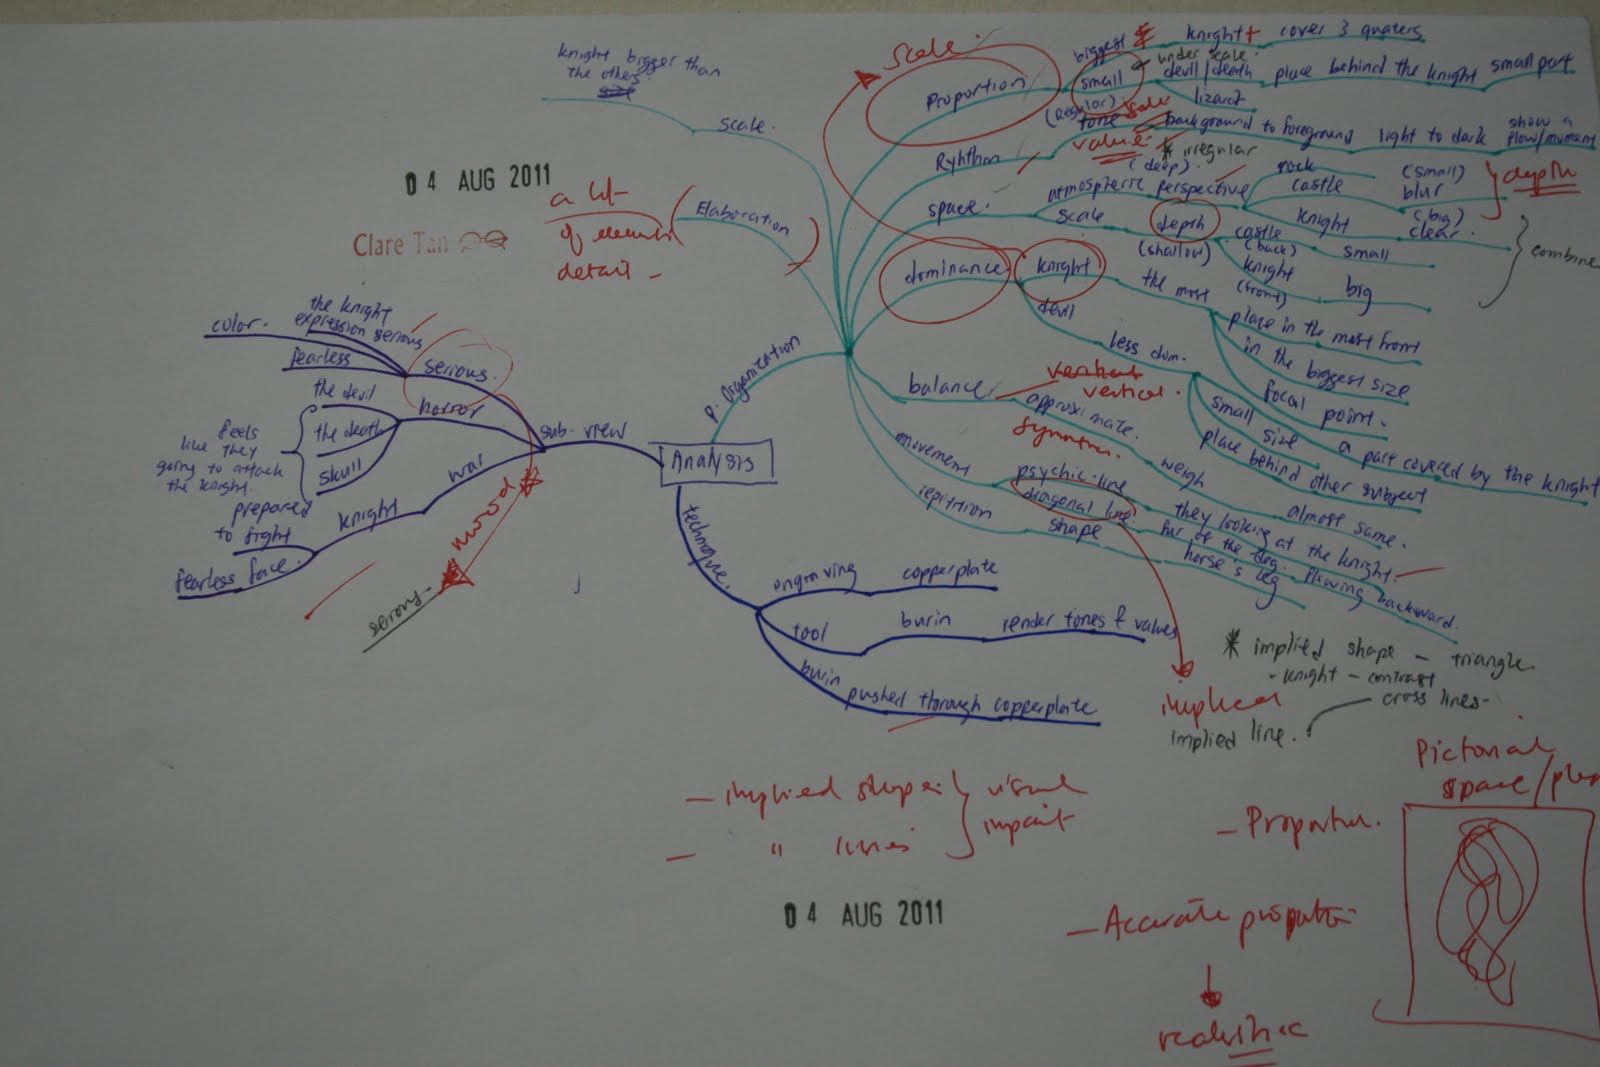 knight bigger than
the others
scale.
04 AUG 2011
Clare Tan
a lot
of elements
detail -
Elaboration
P. Organization
Analysis
sub. view
serious.
the knight
expression serious
color.
fearless
horror
the devil
the death
skull
feels
like they
going to attack
the knight.
war
knight
prepared
to fight
fearless face.
mood
serious.
technique.
engraving
copperplate
tool
burin
render tones & values
burin
pushed through copperplate
Scale.
Proportion
biggest
knight
cover 3 quaters
small
under scale.
devil/death
place behind the knight
small part
lizard
Ryhthm
(Regular)
tone
scale
value
background to foreground
light to dark
show a
flow/movment
* irregular
space.
atmospheric perspective
(deep)
rock
castle
(small)
blur
knight
(big)
clear.
depth
scale
depth
(shallow)
castle
(back)
small
knight
(front)
big
combine
dominance
knight
the most
place in the most front
in the biggest size
focal point.
a part covered by the knight
devil
less dom.
small size
place behind other subject
balance
vertical
vertical.
approximate.
symmtr.
weigh
almost same.
movement
psychic-line
they looking at the knight.
diagonal line.
fur of the dog.
flowing backward.
repitition
shape
horse's leg
* implied shape - triangle
- knight - contrast
cross lines-
implied
implied line.
- implied shape
- " lines
visual
impact
04 AUG 2011
Pictorial
space/
- Proportion.
- Accurate proportion
realistic